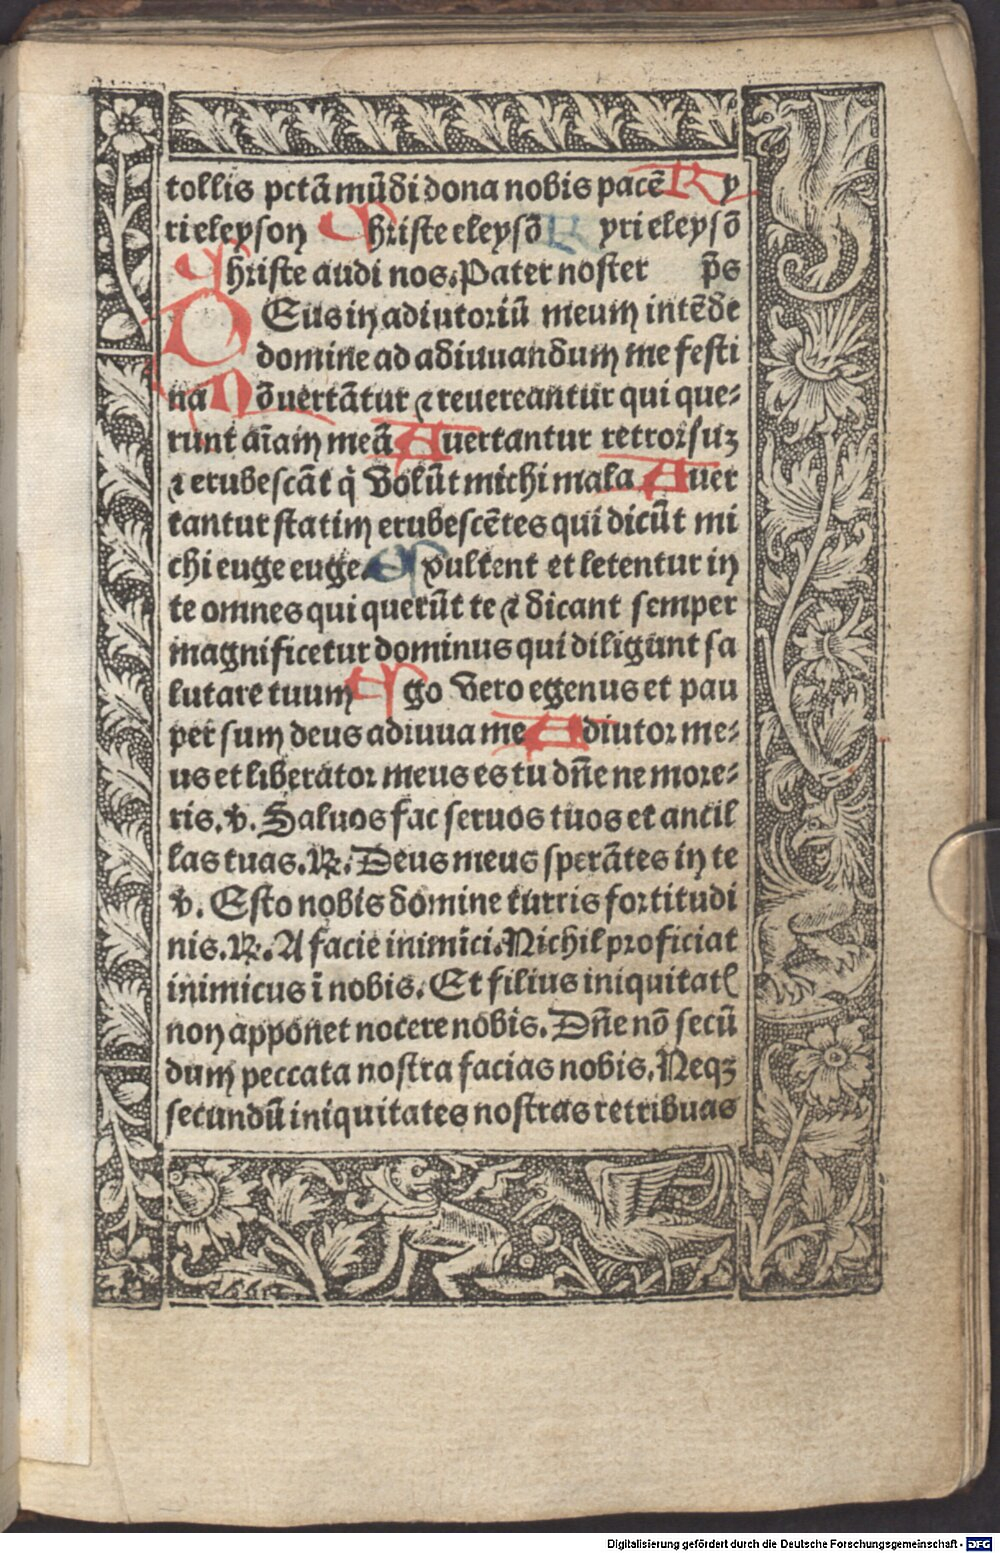 tollis pctā mūdi dona nobis pacē Ky
rieleyson Christe eleysō Kyrieleysō
Christe audi nos. Pater noster p̄s
DEus in adiutoriū meum intēde
domine ad adiuuandum me festi
na Cōuertātur ⁊ reuereantur qui que⸗
runt aīam meā Auertantur retrorsuꝫ
⁊ erubescāt q̄ volūt michi mala Auer
tantur statim erubescētes qui dicūt mi
chi euge euge. Exultent et letentur in
te omnes qui querūt te ⁊ dicant semper
magnificetur dominus qui diligunt sa
lutare tuum Ego vero egenus et pau
per sum deus adiuua me Adiutor me⸗
us et liberator meus es tu dn̄e ne more⸗
ris. ℣. Saluos fac seruos tuos et ancil
las tuas. ℞. Deus meus sperātes in te
℣. Esto nobis domine turris fortitudi
nis. ℞. A facie inimici. Nichil proficiat
inimicus ī nobis. Et filius iniquitatꝭ
non apponet nocere nobis. Dn̄e nō secū
dum peccata nostra facias nobis. Neqꝫ
secundū iniquitates nostras retribuas
Digitalisierung gefördert durch die Deutsche Forschungsgemeinschaft - DFG